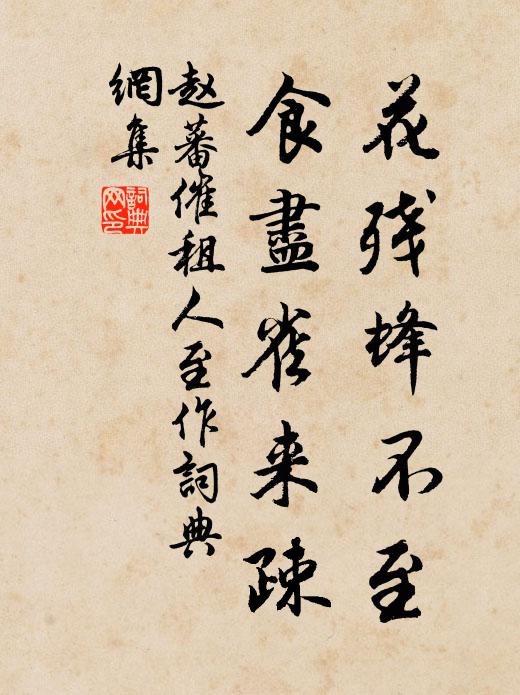 花残蜂不至
食盡雀来疎
赵蕃催租人至作詞典
網集
詞典
网印